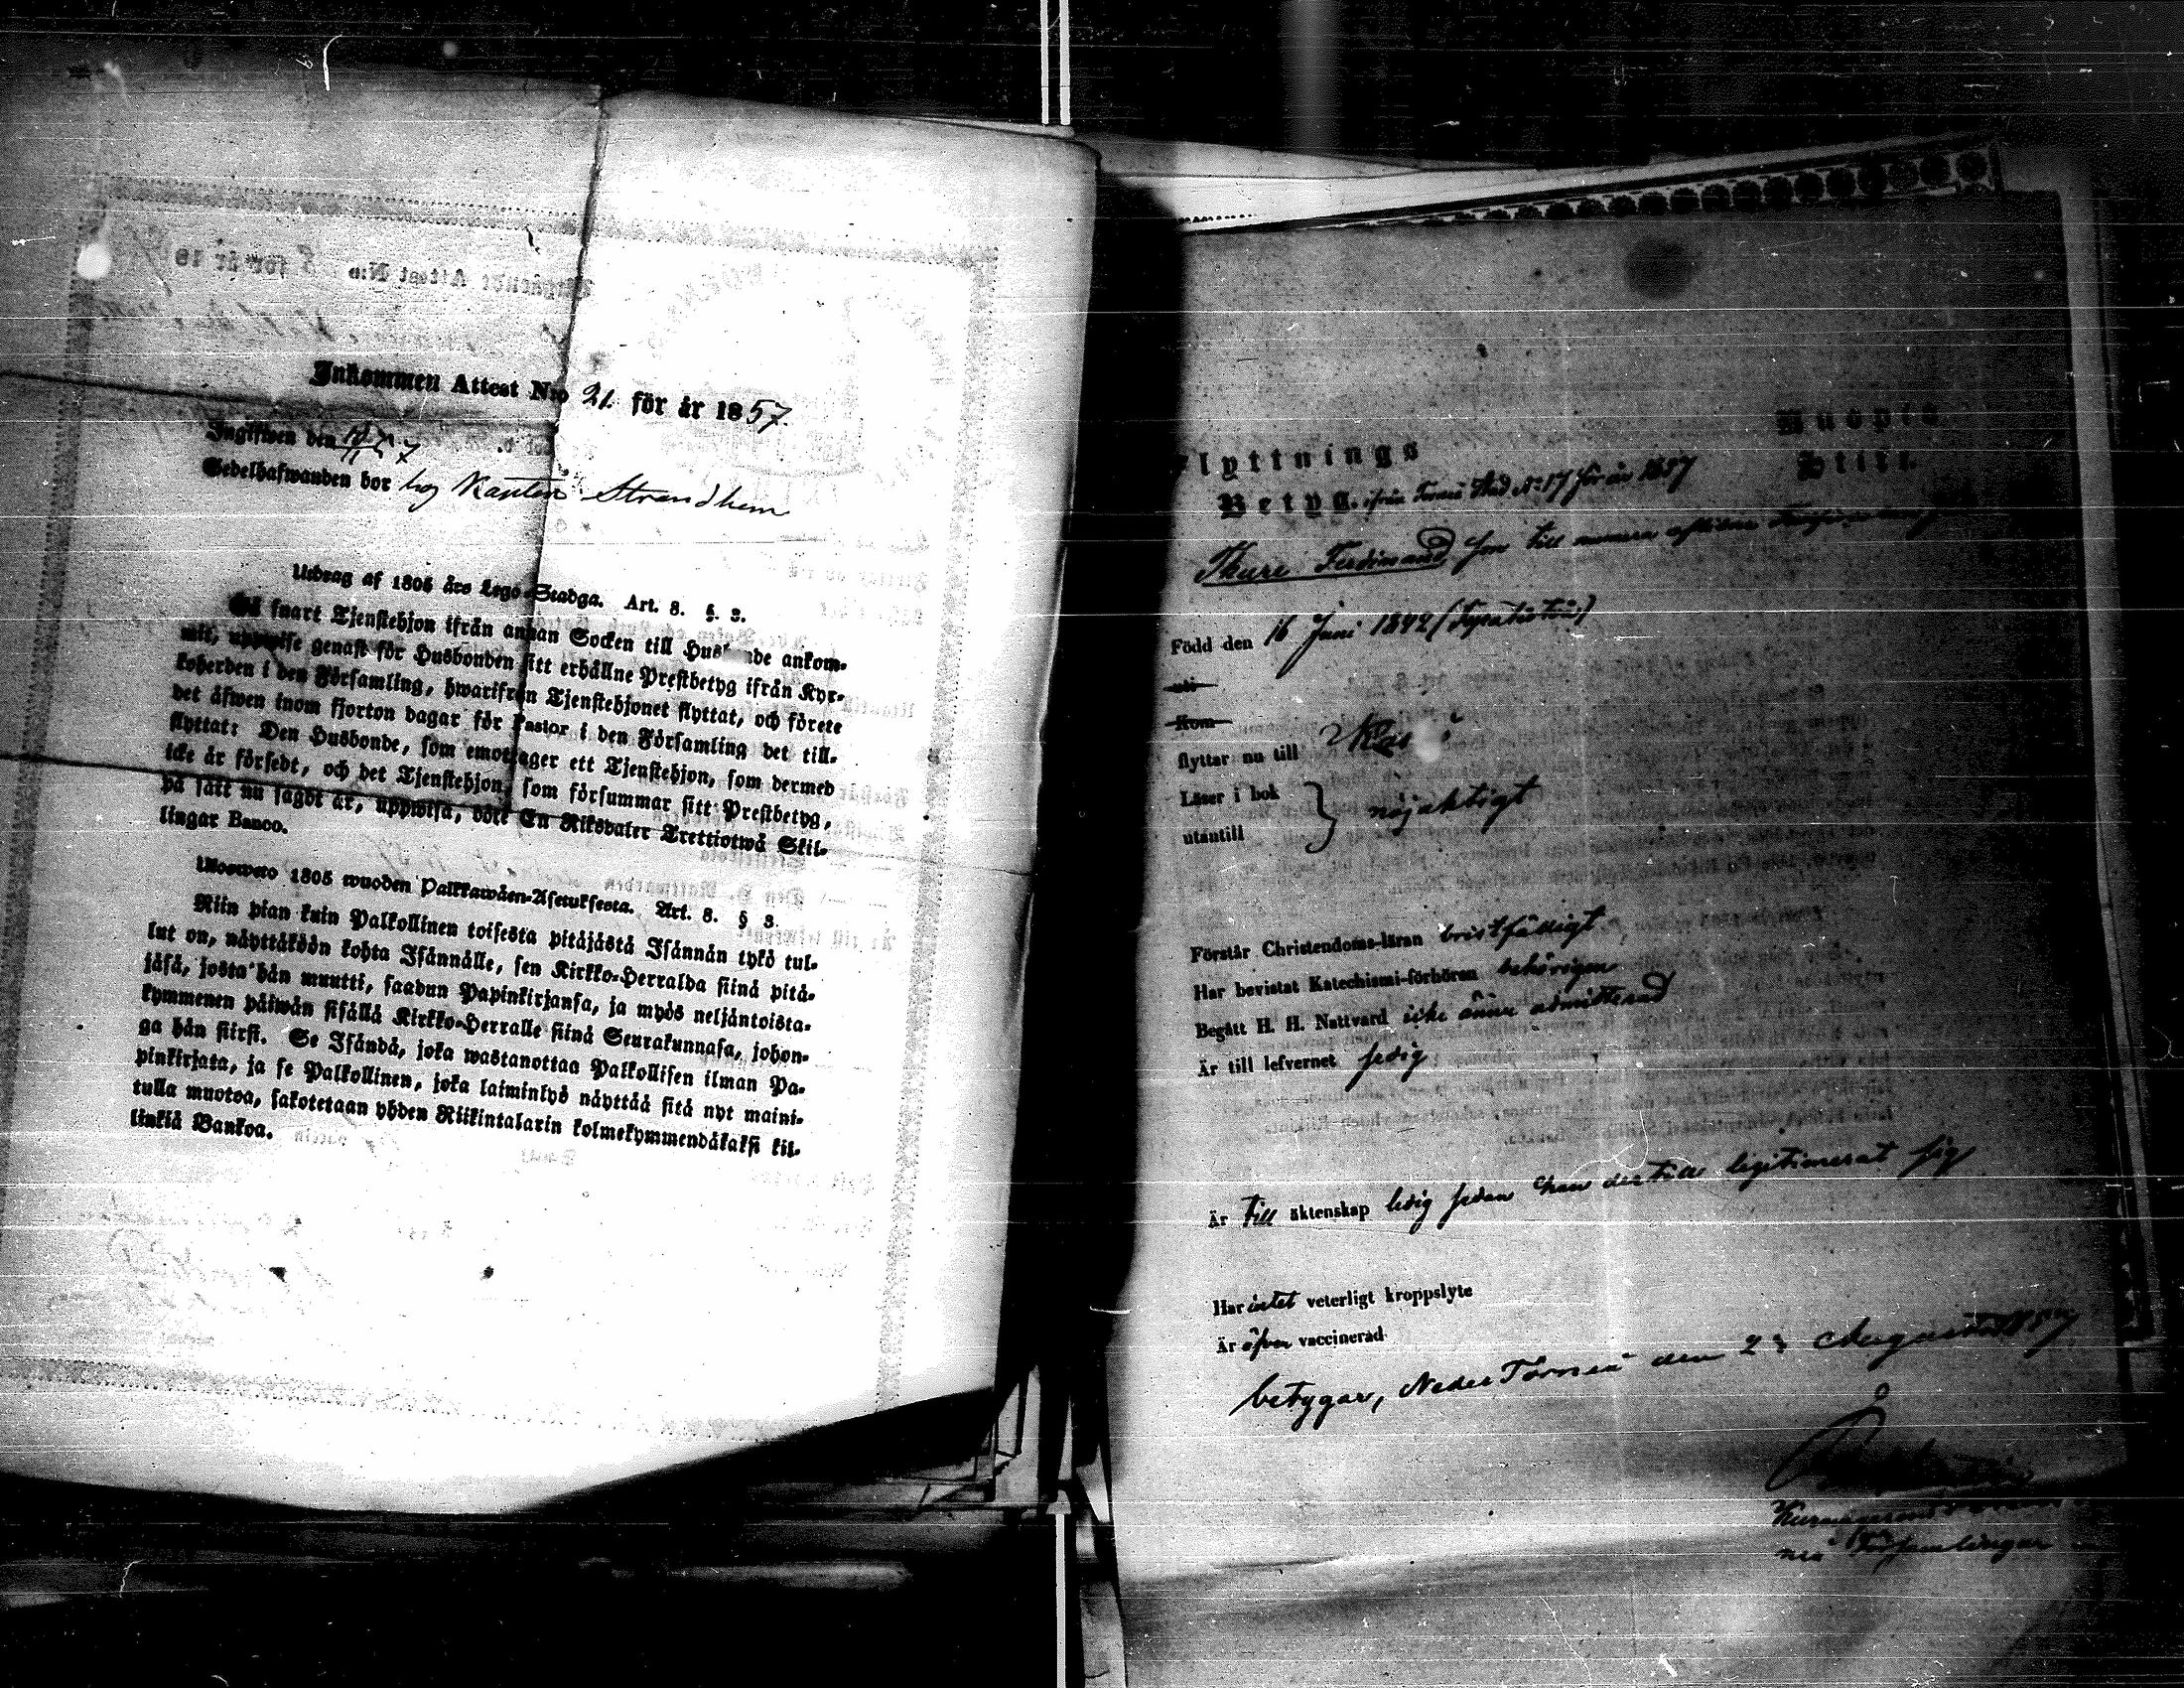 Inkommen Attest N:o 21. för år 1857.
Ingifwen den
Sedelhafwanden bor hos Kantor Strandhem
Utdrag af 1805 års Lego-Stadga. Art. 8. §. 3.
Så snart Tjenstehjon ifrån annan Socken till Husbonde ankom-
mit, uppwise genast för Husbonden sitt erhållne Prestbetyg ifrån Kyr-
koherden i den Församling, hwarifrån Tjenstehjonet flyttat, och förete
det åfwen inom fjorton dagar för Pastor i den Församling det till-
flyttat: Den Husbonde, som emottager ett Tjenstehjon, som dermed
icke är försedt, och det Tjenstehjon, som försummar sitt Prestbetyg,
på sätt nu sagdt är, uppwisa, böte En Riksdaler Trettiotwå Skil-
lingar Banco.
Ulosweto 1805 wuoden Palkkawäen-Asetuksesta. Art. 8. § 3.
Niin pian kuin Palkollinen toisesta pitäjästä Isännän tykö tul-
lut on, näyttäköön kohta Isännälle, sen Kirkko-Herralda siinä pitä-
jäsä, josta hän muutti, saadun Papinkirjansa, ja myös neljäntoista-
kymmenen päiwän sisällä Kirkko-Herralle siinä Seurakunnasa, johon-
ga hän siirsi. Se Isändä, joka wastanottaa Palkollisen ilman Pa-
pinkirjata, ja se Palkollinen, joka laiminlyö näyttää sitä nyt maini-
tulla muotoa, sakotetaan yhden Riikintalarin kolmekymmendäkaksi kil-
linkiä Bankoa.
Flyttnings
Betyg. ifrån Torneå Stad N:o 17 för år 1857
Kuopio
Stift.
Thure Ferdinand, son till numera aflidne
Född den 16 Juni 1842
uti
Kom
flyttar nu till
Läser i bok
utantill } nöjaktigt
Förstår Christendoms-läran bristfälligt
Har bevistat Katechismi-förhören behörigen
Begått H. H. Nattvard icke ännu admitterad
Är till lefvernet sedig
Är till äktenskap ledig sedan han dertill legitimerat sig
Har intet veterligt kroppslyte
Är äfven vaccinerad
betygar, Neder Torneå den 23 Augusti 1857